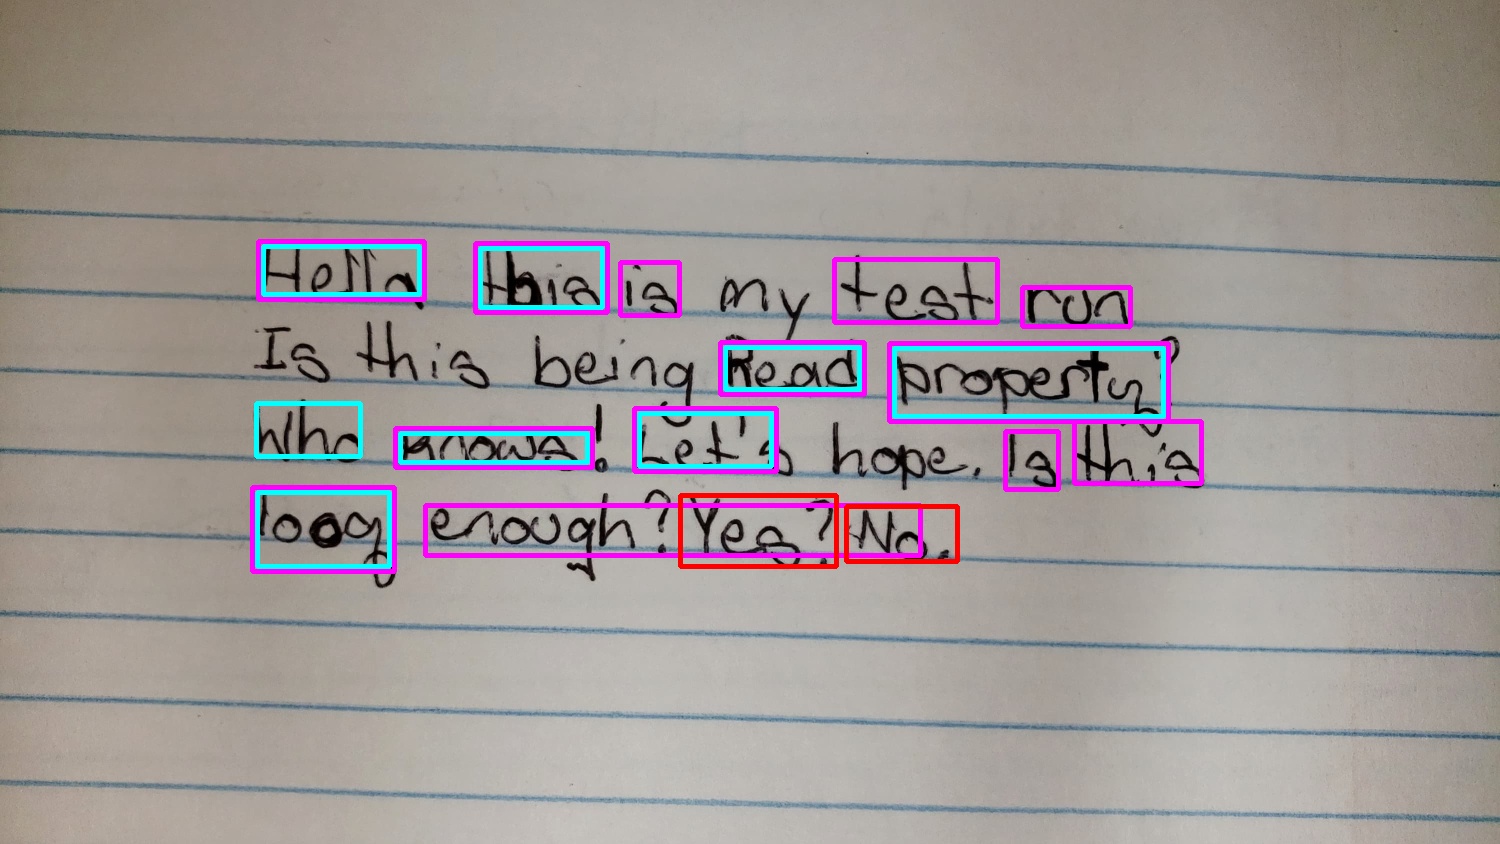 Hello, this is my test run
Is this being Read property?
Who knows! Let's hope. Is this
long enough? Yes? No.